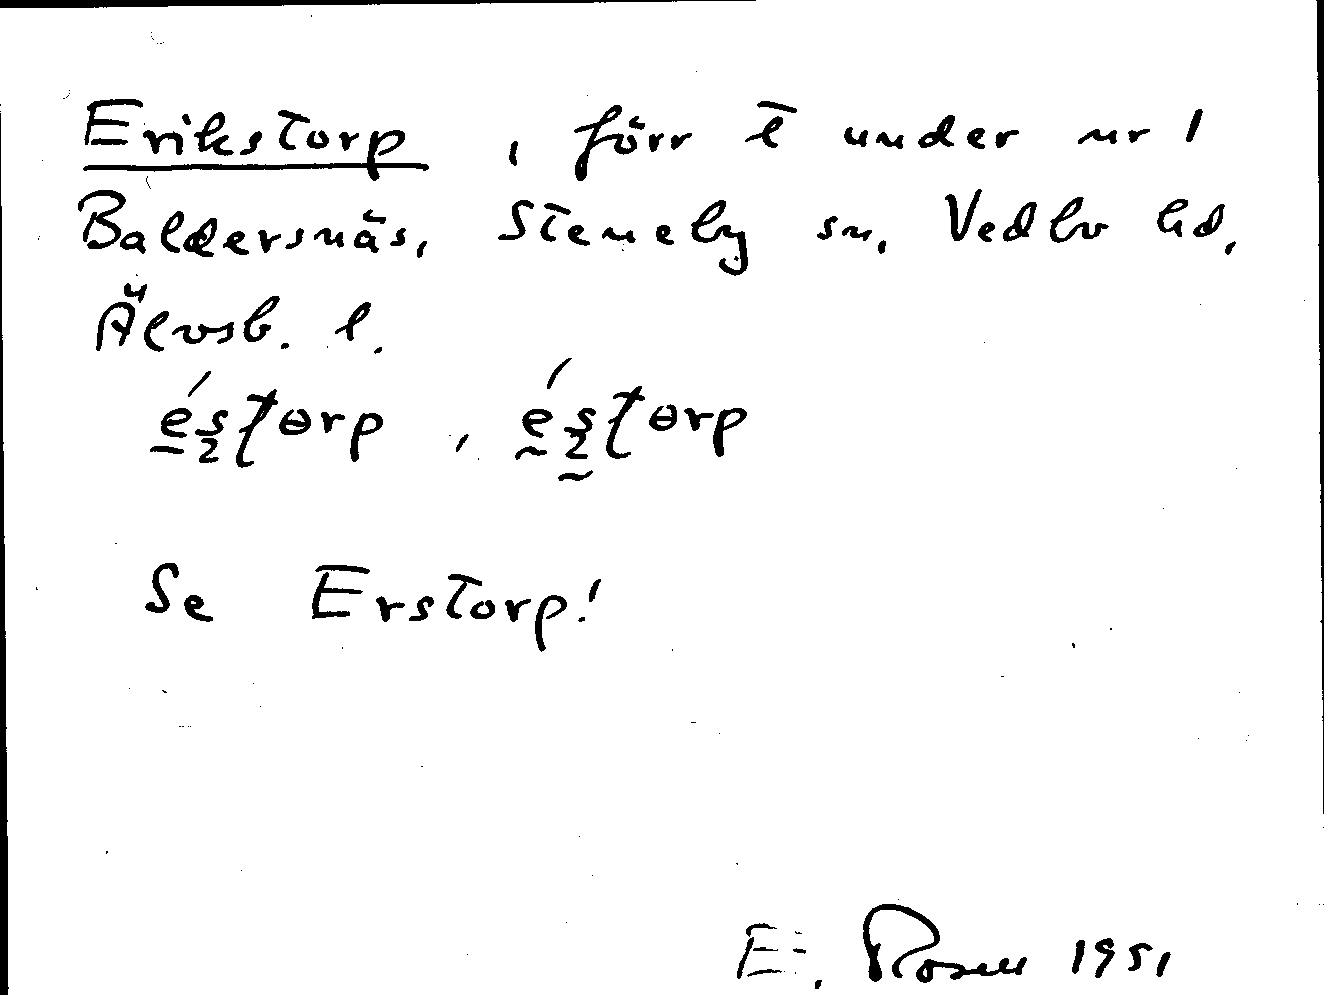 Erikstorp, förr t under nr 1
Baldersnäs, Steneby sn, Vedbo hd,
Älvsb. l.
Se Erstorp!
E. Rosell 1951